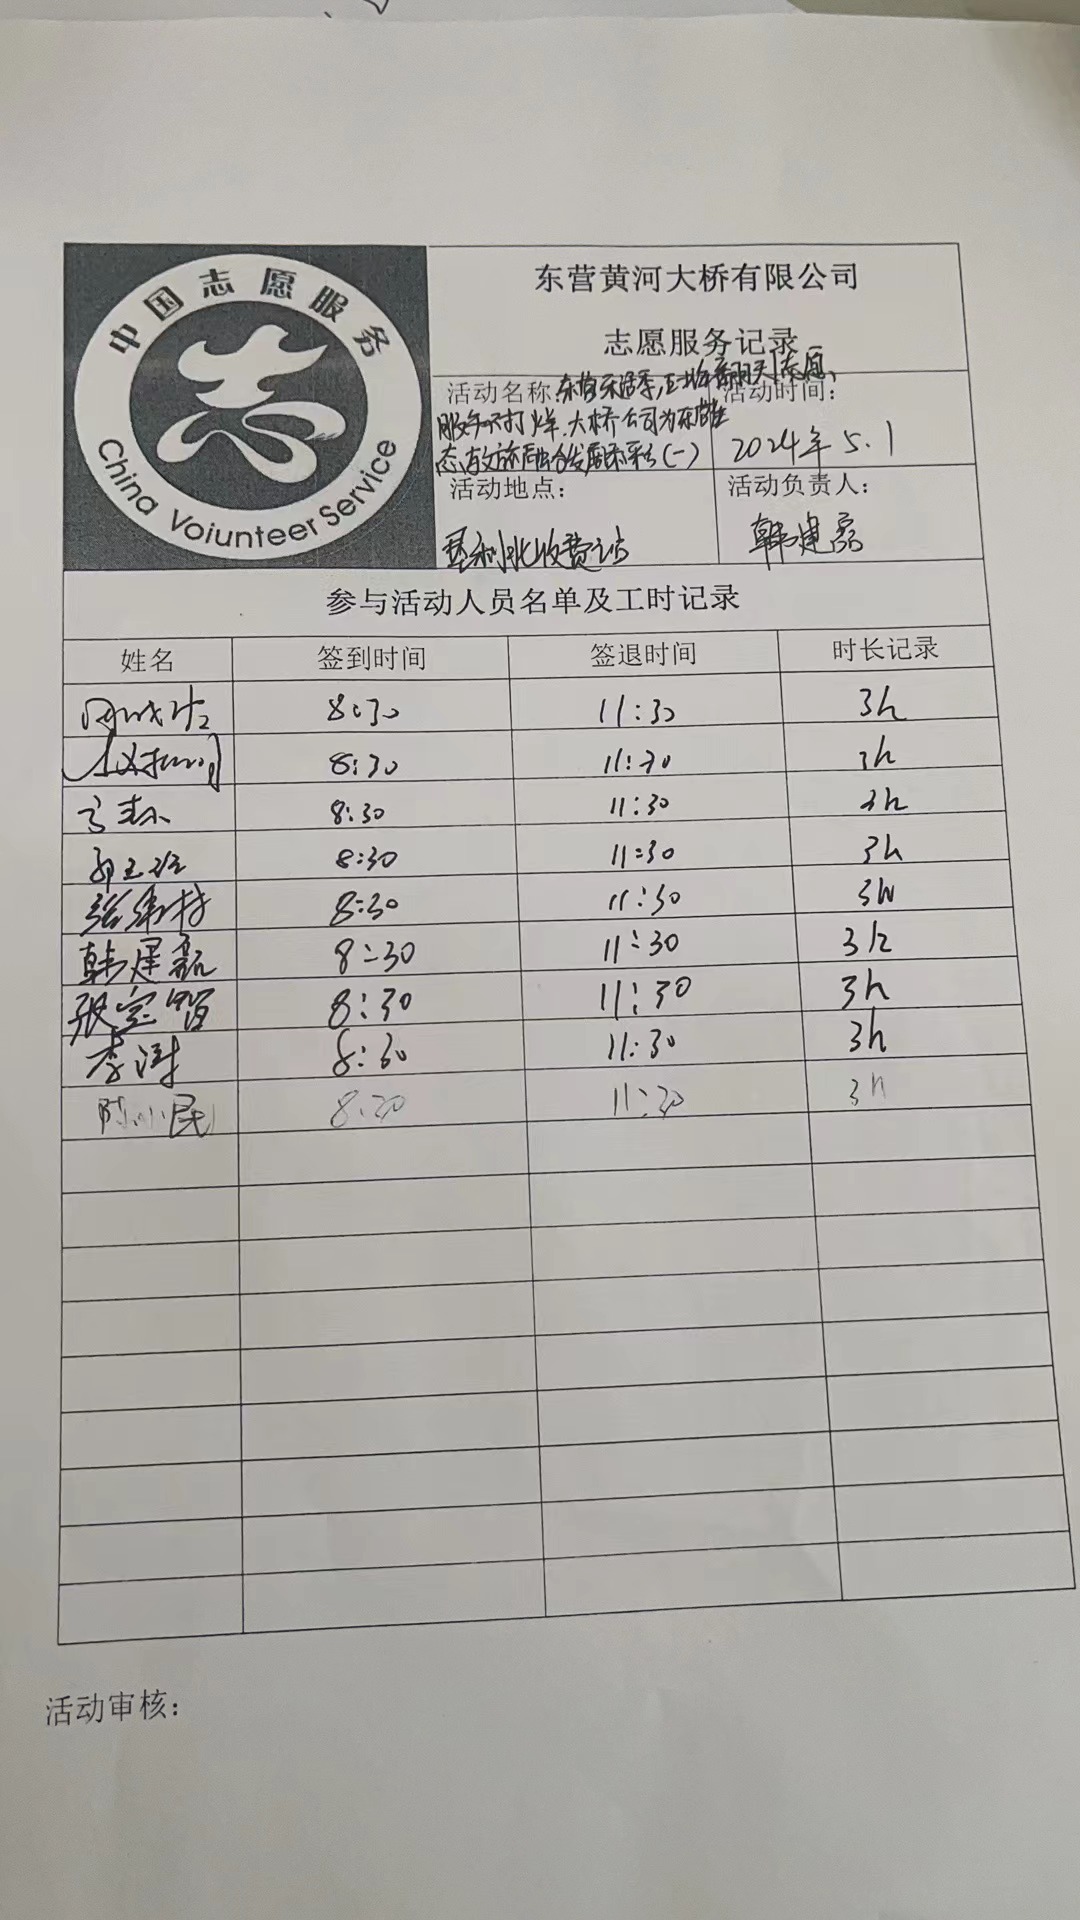 中国志愿服务
China Voiunteer Service
东营黄河大桥有限公司
志愿服务记录
活动名称:
志愿
服务不打烊,大桥公司为东营生
态文旅融合发展添彩(一)
活动时间:
2024年5.1
活动地点:
垦利北收费站
活动负责人:
韩建磊
参与活动人员名单及工时记录
姓名 签到时间 签退时间 时长记录
8:30 11:30 3h
8:30 11:30 3h
8:30 11:30 3h
8:30 11:30 3h
8:30 11:30 3h
韩建磊 8:30 11:30 3h
张宝智 8:30 11:30 3h
李澍 8:30 11:30 3h
陈小民 8:30 11:30 3h
活动审核: